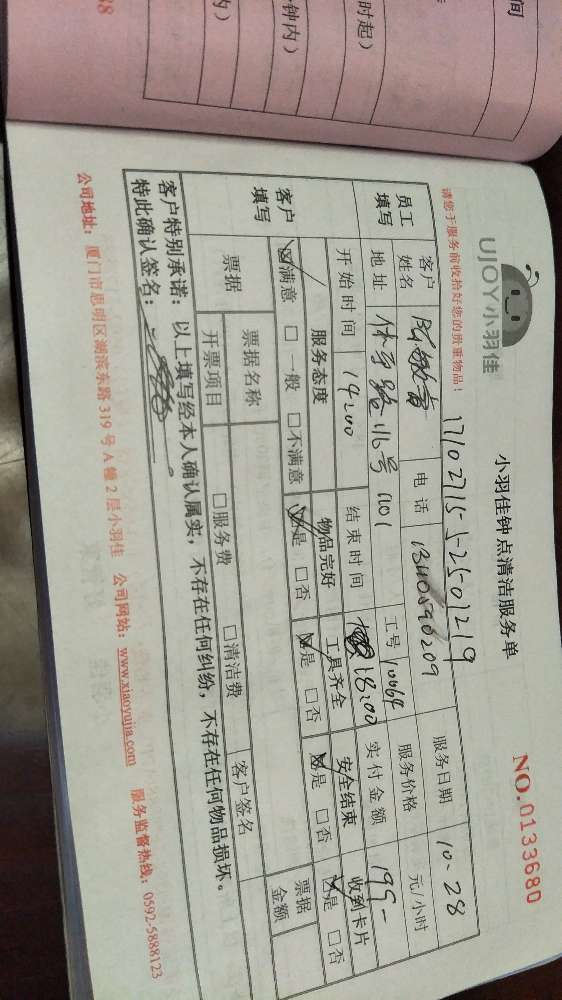 时起)
钟内)
内)
间
38
UJOY小羽佳
小羽佳钟点清洁服务单
NO.0133680
请您于服务前收拾好您的贵重物品!
17102715525012 19
员工填写
客户姓名
电话 1340590209
服务日期 10-28
地址 116号 1101
工号 10064
服务价格 元/小时
开始时间 14:00
结束时间 18:00
实付金额 195-
客户填写
服务态度 物品完好 工具齐全 安全结束 收到卡片
☑满意 □一般 □不满意 ☑是 □否 ☑是 □否 ☑是 □否 ☑是 □否
票据
票据名称 客户签名 票据金额
开票项目 □服务费 □清洁费
客户特别承诺: 以上填写经本人确认属实,不存在任何纠纷,不存在任何物品损坏。
特此确认签名:
公司地址: 厦门市思明区湖滨东路319号A幢2层小羽佳 公司网站: www.xiaoyujia.com 服务监督热线: 0592-5888123